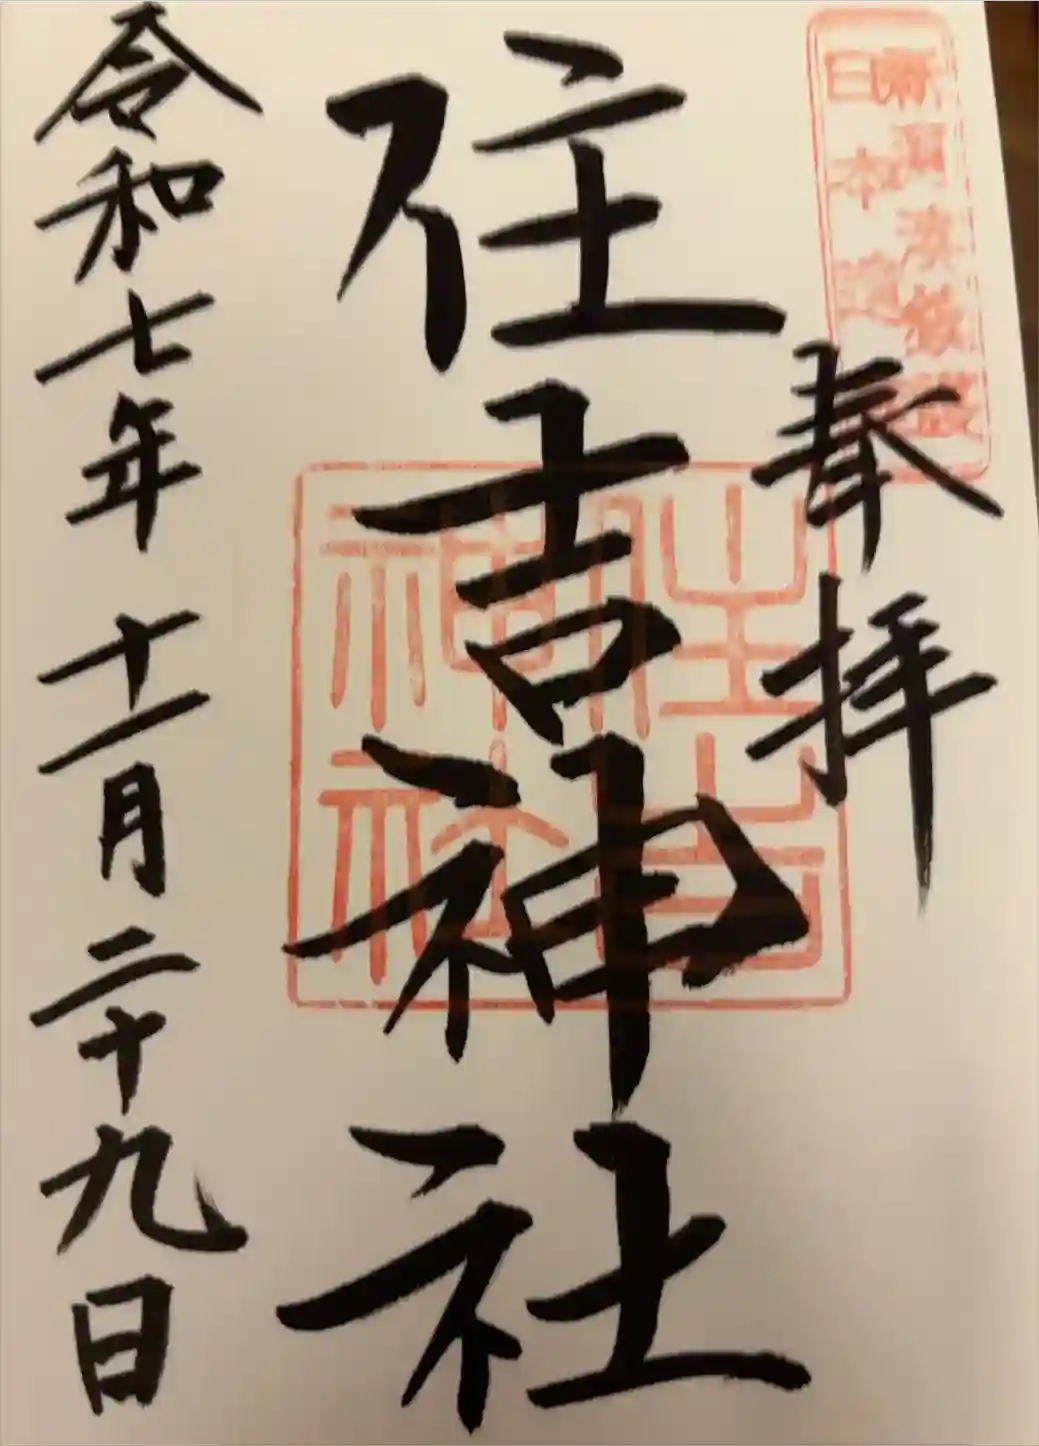 奉拝
住吉神社
令和七年十一月二十九日
住吉
神社
日本